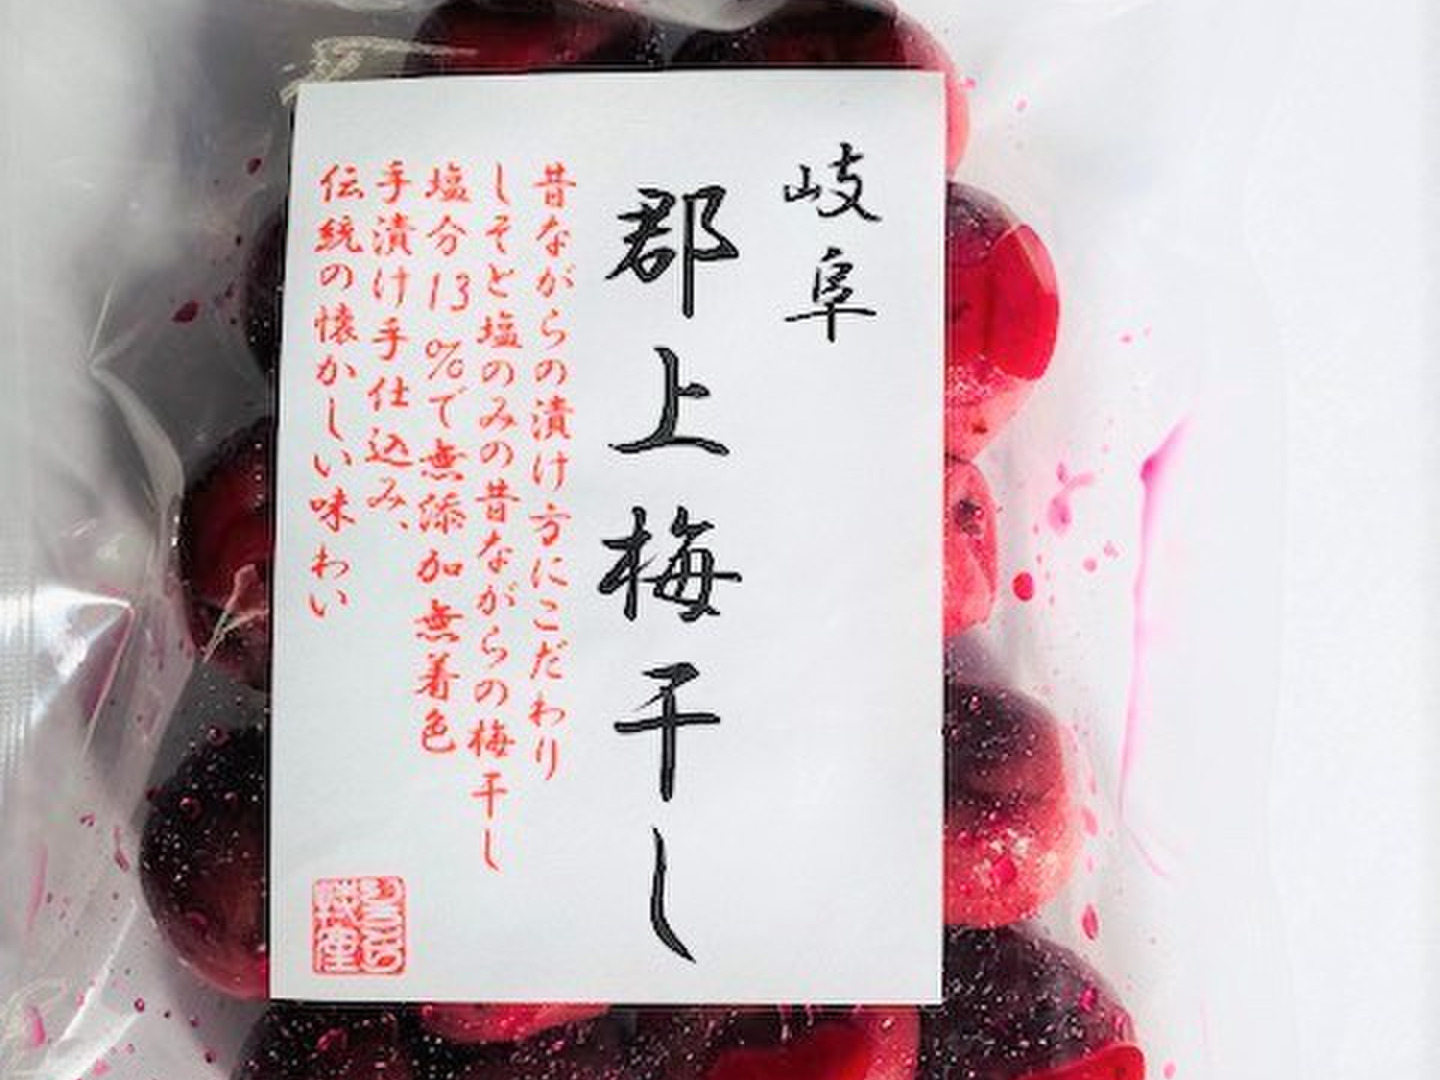 岐阜
郡上梅干し
昔ながらの漬け方にこだわり
しそと塩のみの昔ながらの梅干し
塩分13%で無添加無着色
手漬け手仕込み、
伝統の懐かしい味わい